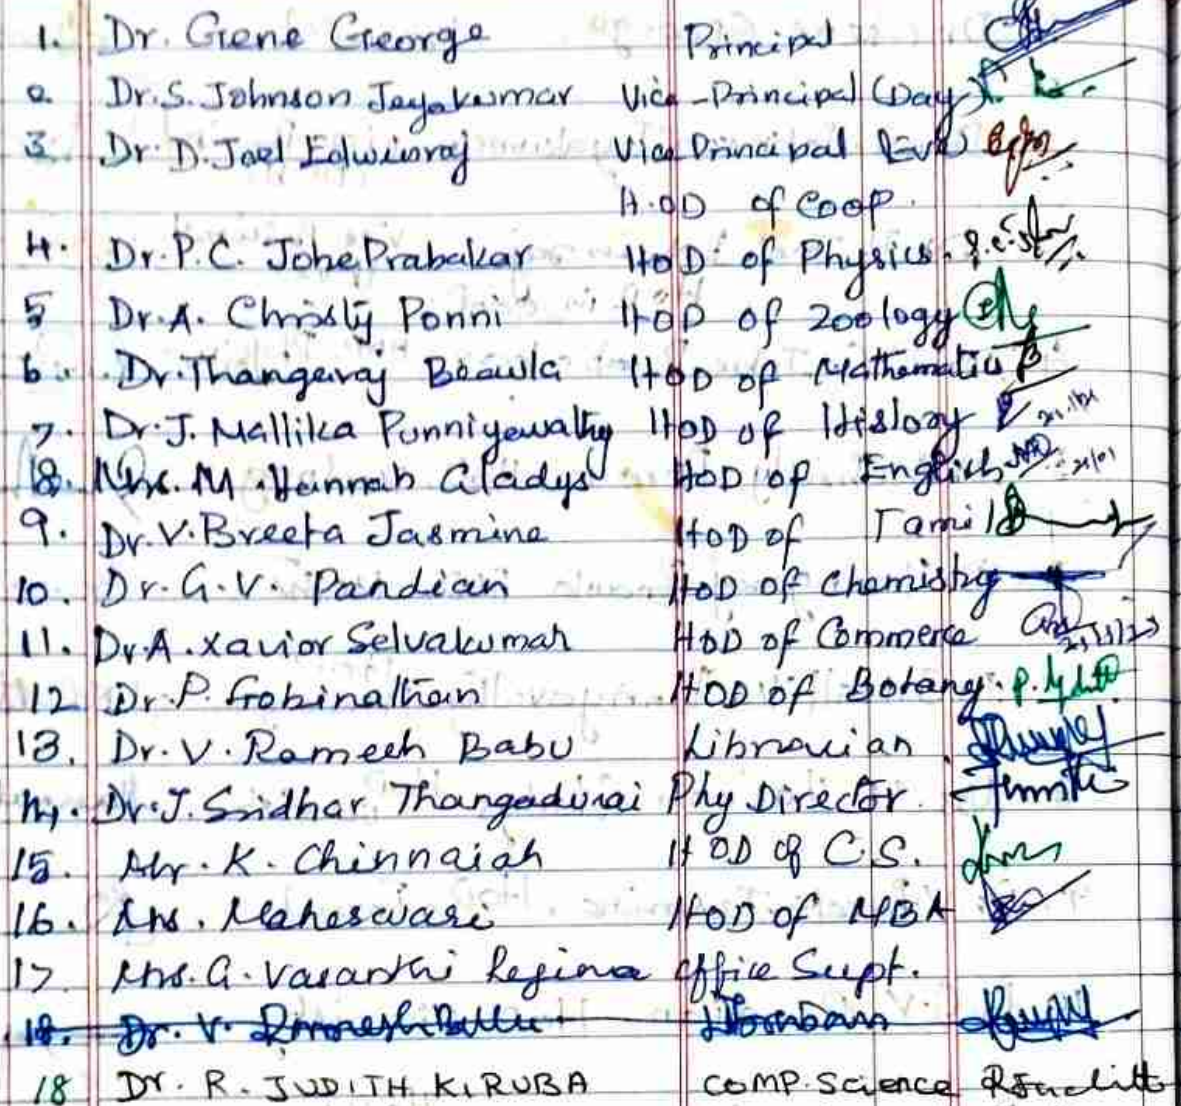 1. Dr. Gene George Principal
2. Dr. S. Johnson Jayakumar Vice-Principal (Day)
3 Dr. D. Joel Edwinraj Vice Principal (Eve)
H.OD of Coop.
4. Dr. P.C. Johe Prabakar HOD of Physics.
5 Dr. A. Christy Ponni HOD of Zoology
6. Dr. Thangaraj Beaula HOD of Mathematics
7. Dr. J. Mallika Punniyawathy HOD of History
8. Mrs. M. Hannah Gladys HOD of English
9. Dr. V. Breeta Jasmine HOD of Tamil
10. Dr. G. V. Pandian HOD of Chemistry
11. Dr. A. Xavior Selvakumar HOD of Commerce
12 Dr. P. Gobinathan HOD of Botany.
13. Dr. V. Ramesh Babu Librarian
14. Dr. J. Sridhar Thangadurai Phy Director
15. Mr. K. Chinnaiah HOD of C.S.
16. Mrs. Maheswari HOD of MBA
17 Mrs. G. Vasanthi Regina Office Supt.
18. Dr. V. Ramesh Babu Librarian
18 Dr. R. JUDITH KIRUBA COMP. Science